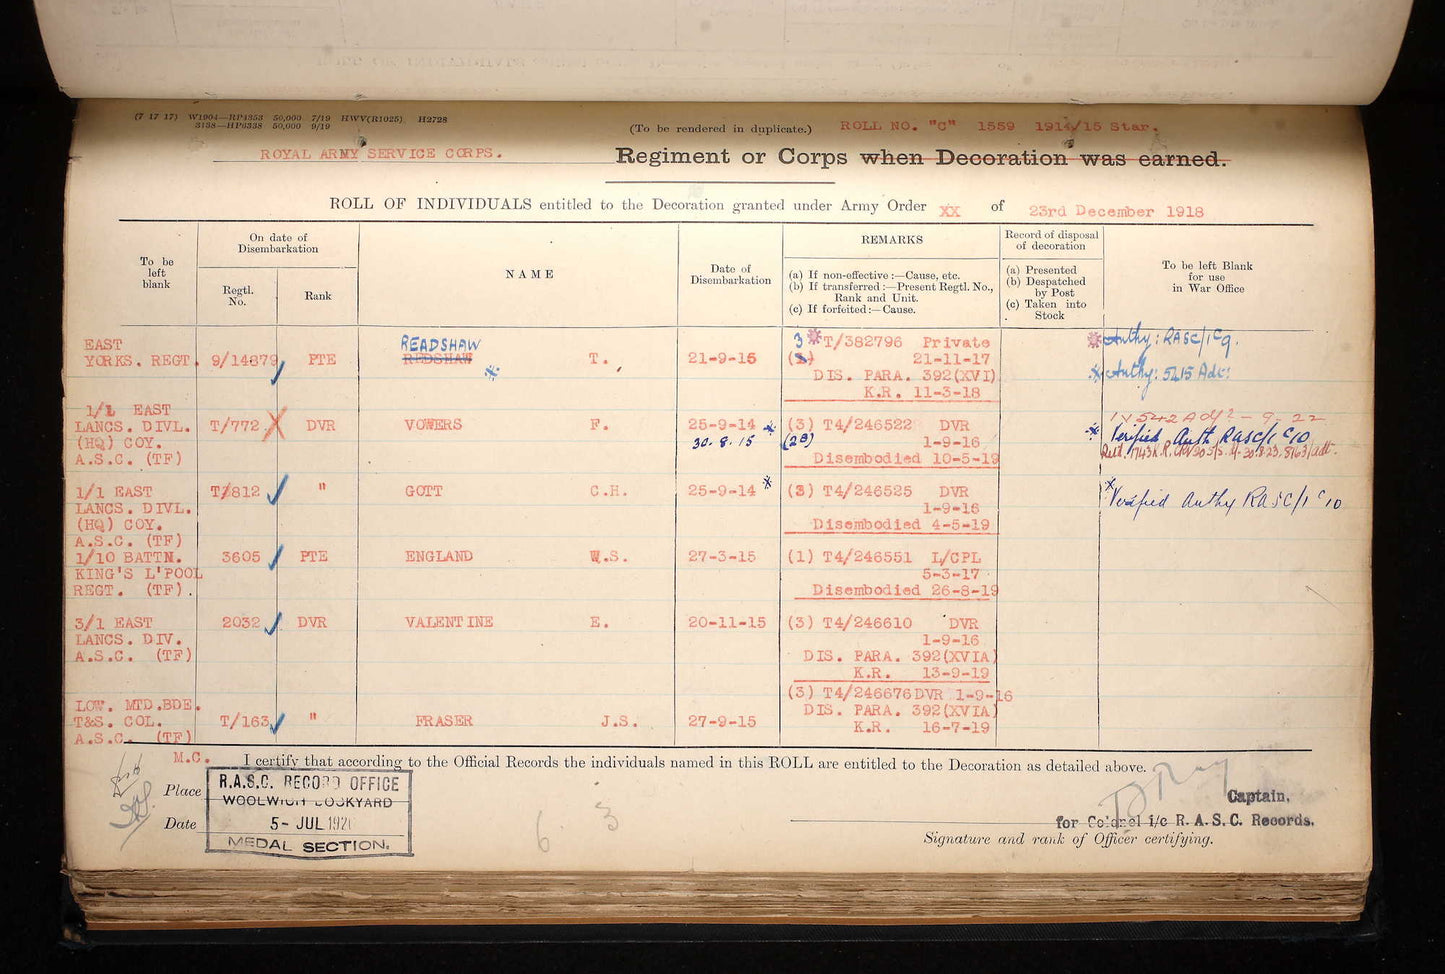 (7 17 17) W1904—RP4353 50,000 7/19 HWV(R1025) H2728
3138—HP6338 50,000 9/19
(To be rendered in duplicate.) ROLL NO. "C" 1559 1914/15 Star.
ROYAL ARMY SERVICE CORPS. Regiment or Corps when Decoration was earned.
ROLL OF INDIVIDUALS entitled to the Decoration granted under Army Order XX of 23rd December 1918
To be left blank
On date of Disembarkation
Regtl. No.
Rank
NAME
Date of Disembarkation
REMARKS
(a) If non-effective :—Cause, etc.
(b) If transferred :—Present Regtl. No., Rank and Unit.
(c) If forfeited :—Cause.
Record of disposal of decoration
(a) Presented
(b) Despatched by Post
(c) Taken into Stock
To be left Blank for use in War Office
READSHAW
EAST 3 * T/382796 Private * Authy: RASC/1 C9.
YORKS. REGT. 9/14879 PTE REDSHAW T. 21-9-15 21-11-17
DIS. PARA. 392(XVI) * Authy: 5215 Adt:
K.R. 11-3-18
1/1 EAST
LANCS. DIVL. T/772 DVR VOWERS F. 25-9-14 * (3) T4/246522 DVR
(HQ) COY. 30.8.15 (28) 1-9-16 * Verified Auth RASC/1 C10
A.S.C. (TF) Disembodied 10-5-19
1/1 EAST T/812 " GOTT C.H. 25-9-14 * (3) T4/246525 DVR * Verified Authy RASC/1 C10
LANCS. DIVL. 1-9-16
(HQ) COY. Disembodied 4-5-19
A.S.C. (TF)
1/10 BATTN. 3605 PTE ENGLAND W.S. 27-3-15 (1) T4/246551 L/CPL
KING'S L'POOL 5-3-17
REGT. (TF). Disembodied 26-8-19
3/1 EAST 2032 DVR VALENTINE E. 20-11-15 (3) T4/246610 DVR
LANCS. DIV. 1-9-16
A.S.C. (TF) DIS. PARA. 392(XVIA)
K.R. 13-9-19
(3) T4/246676 DVR 1-9-16
LOW. MTD.BDE. DIS. PARA. 392(XVIA)
T&S. COL. T/163 " FRASER J.S. 27-9-15 K.R. 16-7-19
A.S.C. (TF)
M.C. I certify that according to the Official Records the individuals named in this ROLL are entitled to the Decoration as detailed above.
Place R.A.S.C. RECORD OFFICE
WOOLWICH DOCKYARD
Date 5- JUL 192
MEDAL SECTION.
Captain,
for Colonel i/c R.A.S.C. Records.
Signature and rank of Officer certifying.
6. 3